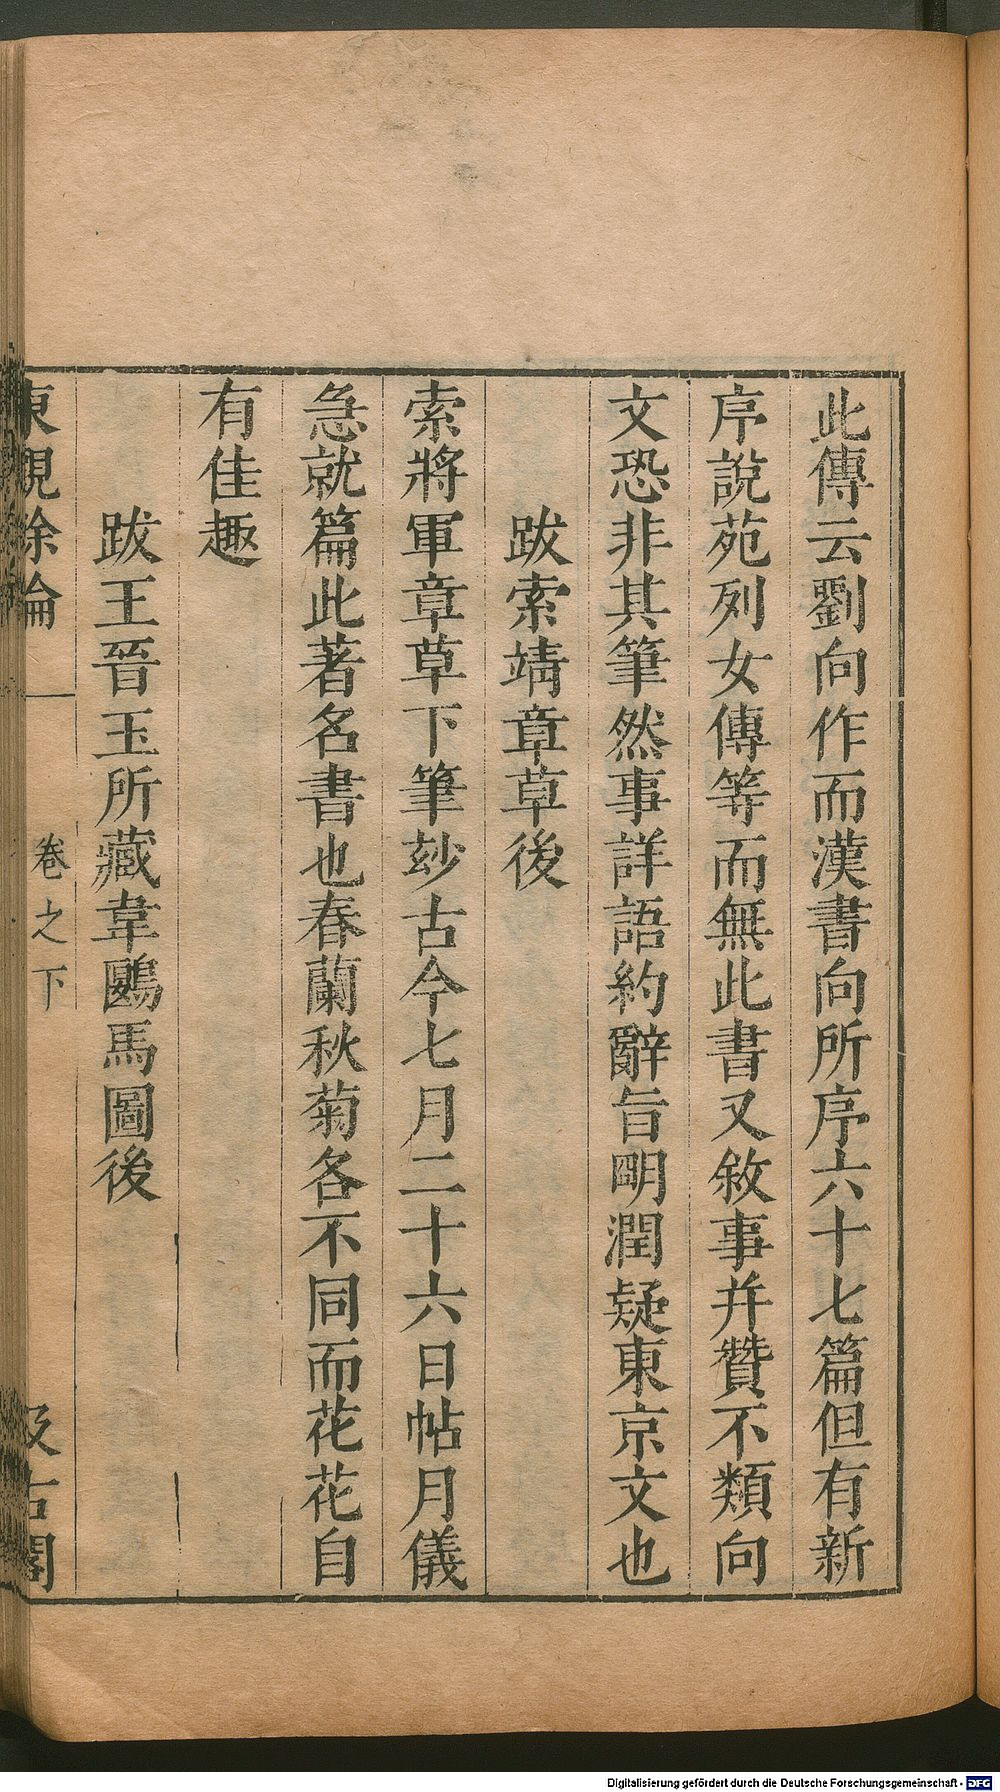 此傳云劉向作而漢書向所序六十七篇但有新
序說苑列女傳等而無此書又敘事幷贊不類向
文恐非其筆然事詳語約辭旨明潤疑東京文也
跋索靖章草後
索將軍章草下筆玅古今七月二十六日帖月儀
急就篇此著名書也春蘭秋菊各不同而花花自
有佳趣
跋王晉玉所藏韋鷗馬圖後
東觀餘論
卷之下
汲古閣
Digitalisierung gefördert durch die Deutsche Forschungsgemeinschaft - DFG